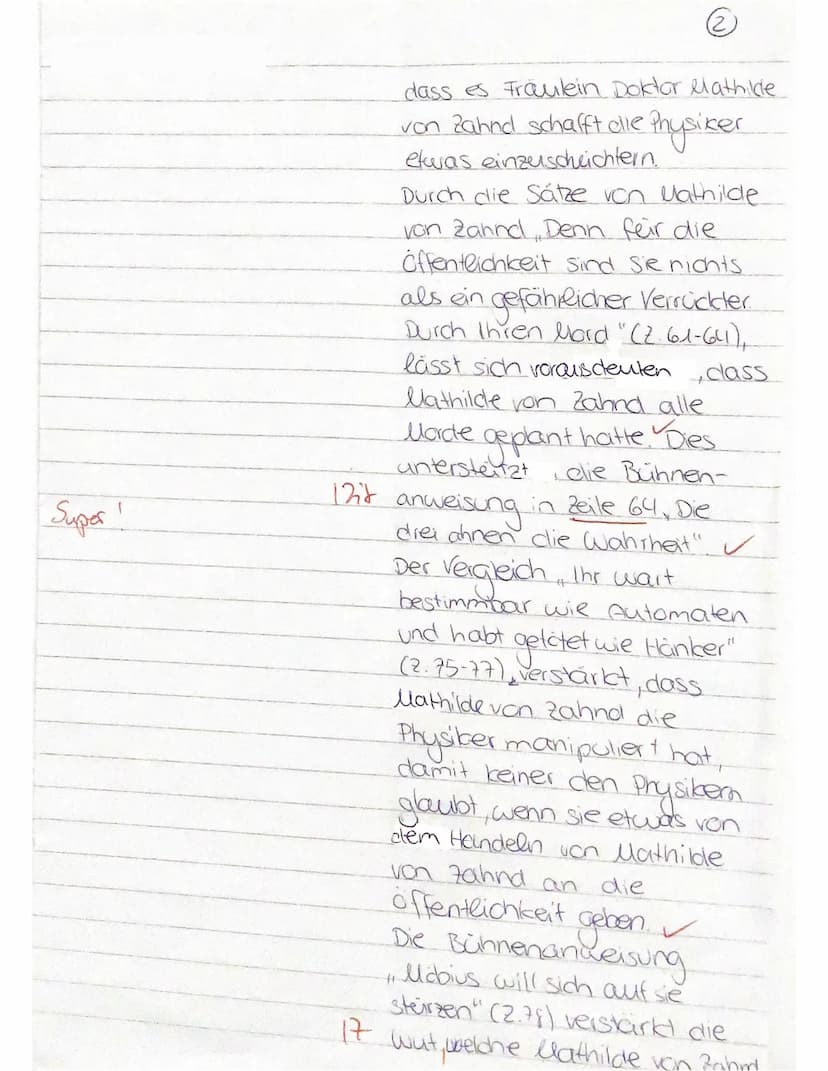 2
dass es Fräulein Doktor Mathilde
von Zahnd schafft die Physiker
etwas einzuschüchtern.
Durch die Sätze von Mathilde
von Zahnd „Denn für die
Öffentlichkeit sind Sie nichts
als ein gefährlicher Verrückter.
Durch Ihren Mord" (Z. 61-64),
lässt sich vorausdeuten , dass
Mathilde von Zahnd alle
Morde geplant hatte. Dies
unterstützt , die Bühnen-
1Zit anweisung in Zeile 64 „Die
Super! drei ahnen die Wahrheit".
Der Vergleich „Ihr wart
bestimmbar wie Automaten
und habt getötet wie Hänker"
(Z. 75-77), verstärkt, dass
Mathilde von Zahnd die
Physiker manipuliert hat,
damit keiner den Physikern
glaubt, wenn sie etwas von
dem Handeln von Mathilde
von Zahnd an die
Öffentlichkeit geben.
Die Bühnenanweisung
„Möbius will sich auf sie
stürzen" (Z.78) verstärkt die
17 Wut, welche Mathilde von Zahnd